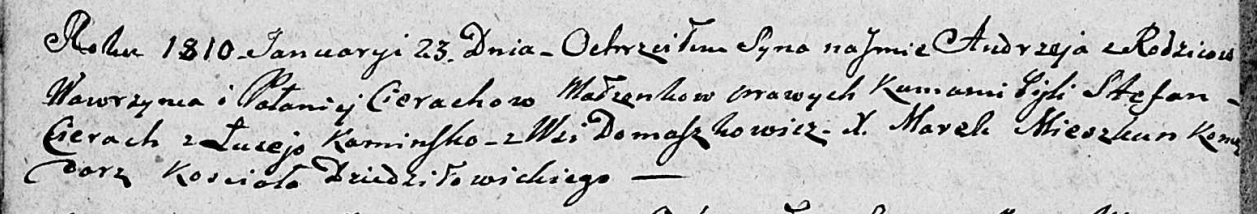 Roku 1810 Januaryi 23. Dnia – Ochrzciłem Syna na Jmie Andrzeja z Rodzicow
Wawrzynca i Połaniej Cierachow Małzenkow prawych Kumami byli Stefan –
Cierach z Łucejo Kaminsko – z Wsi Domaszkowicz – X. Marek Mieszkun Komę
darz Kosciola Dziedziłowickiego —